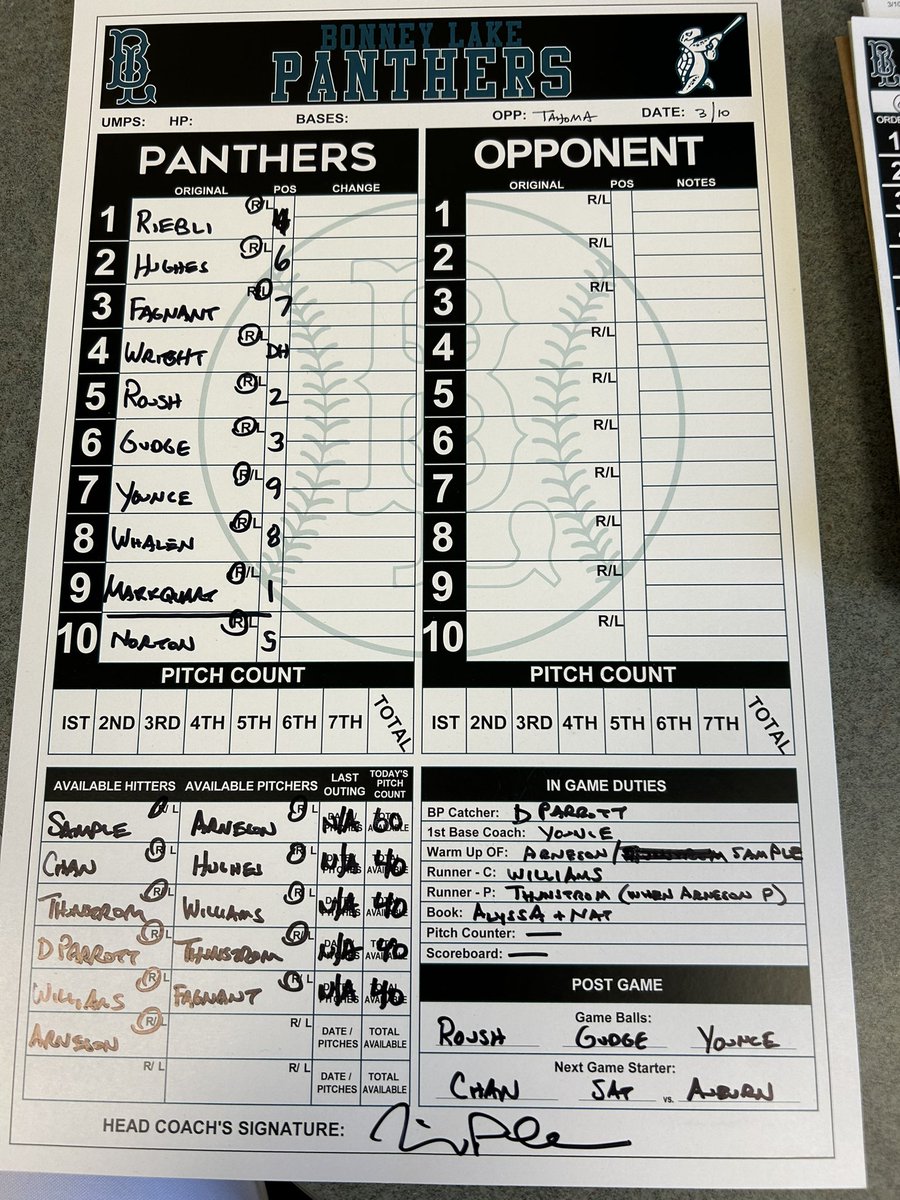 BONNEY LAKE
PANTHERS
UMPS: HP: BASES: OPP: TAHOMA DATE: 3/10
PANTHERS
ORIGINAL POS CHANGE
1 RIEBLI R/L 4
2 HUGHES R/L 6
3 FAGNANT R/L 7
4 WRIGHT R/L DH
5 ROUSH R/L 2
6 GUDGE R/L 3
7 YOUNCE R/L 9
8 WHALEN R/L 8
9 MARKQUART R/L 1
10 NORTON R/L 5
PITCH COUNT
IST 2ND 3RD 4TH 5TH 6TH 7TH TOTAL
OPPONENT
ORIGINAL POS NOTES
1 R/L
2 R/L
3 R/L
4 R/L
5 R/L
6 R/L
7 R/L
8 R/L
9 R/L
10 R/L
PITCH COUNT
IST 2ND 3RD 4TH 5TH 6TH 7TH TOTAL
AVAILABLE HITTERS AVAILABLE PITCHERS LAST OUTING TODAY'S PITCH COUNT
SAMPLE R/L ARNESON R/L N/A 60
CHAN R/L HUGHES R/L N/A 40
THUNSTROM R/L WILLIAMS R/L N/A 40
D PARROTT R/L THUNSTROM R/L N/A 40
WILLIAMS R/L FAGNANT R/L N/A 40
ARNESON R/L R/L DATE / PITCHES TOTAL AVAILABLE
R/L R/L DATE / PITCHES TOTAL AVAILABLE
IN GAME DUTIES
BP Catcher: D PARROTT
1st Base Coach: YOUNCE
Warm Up OF: ARNESON/ SAMPLE
Runner - C: WILLIAMS
Runner - P: THUNSTROM (WHEN ARNESON P)
Book: ALYSSA + NAT
Pitch Counter: —
Scoreboard: —
POST GAME
Game Balls:
ROUSH GUDGE YOUNCE
Next Game Starter:
CHAN SAT vs. AUBURN
HEAD COACH'S SIGNATURE: